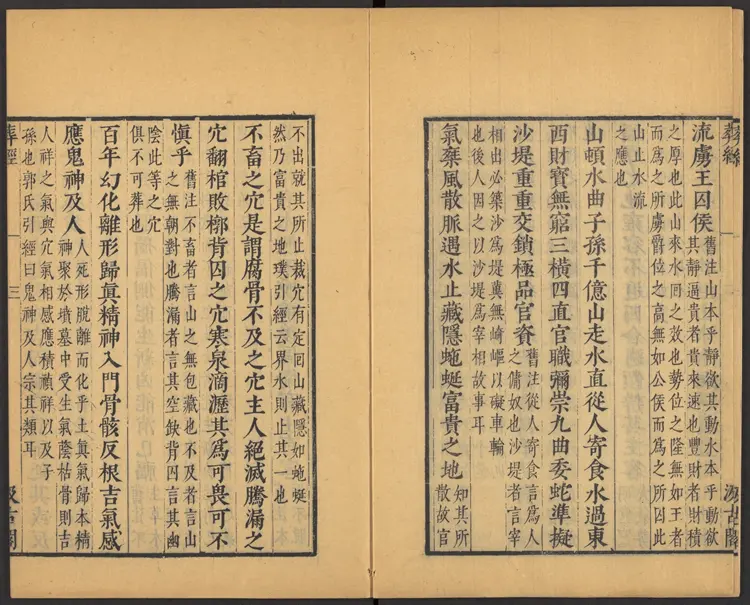 葬經
汲古閣
流虜王囚侯
舊注山本乎靜欲其動水本乎動欲
其靜逼貴者貴來速也豐財者財積
之厚也此山來水回之效也勢位之隆無如王者
而爲之所虜爵位之高無如公侯而爲之所囚此
山止水流
之應也
山頓水曲子孫千億山走水直從人寄食水過東
西財寶無窮三橫四直官職彌崇九曲委蛇準擬
沙堤重重交鎖極品官資
舊注從人寄食言爲人
之傭奴也沙堤者言宰
相出必築沙爲堤冀無崎嶇以礙車輪
也後人因之以沙堤爲宰相故事耳
氣乘風散脈遇水止藏隱蜿蜒富貴之地
知其所
散故官
不出就其所止裁穴有定回山藏隱如蜿蜒
然乃富貴之地璞引經云界水則止其一也
不畜之穴是謂腐骨不及之穴主人絕滅騰漏之
穴翻棺敗槨背囚之穴寒泉滴瀝其爲可畏可不
慎乎
舊注不畜者言山之無包藏也不及者言山
之無朝對也騰漏者言其空缺背囚言其幽
陰此等之穴
俱不可葬也
百年幻化離形歸眞精神入門骨骸反根吉氣感
應鬼神及人
人死形脫離而化乎土眞氣歸本精
神聚於墳墓中受生氣蔭枯骨則吉
人祥之氣與穴氣相感應積禎祥以及子
孫也郭氏引經曰鬼神及人宗其類耳
葬經
三
汲古閣